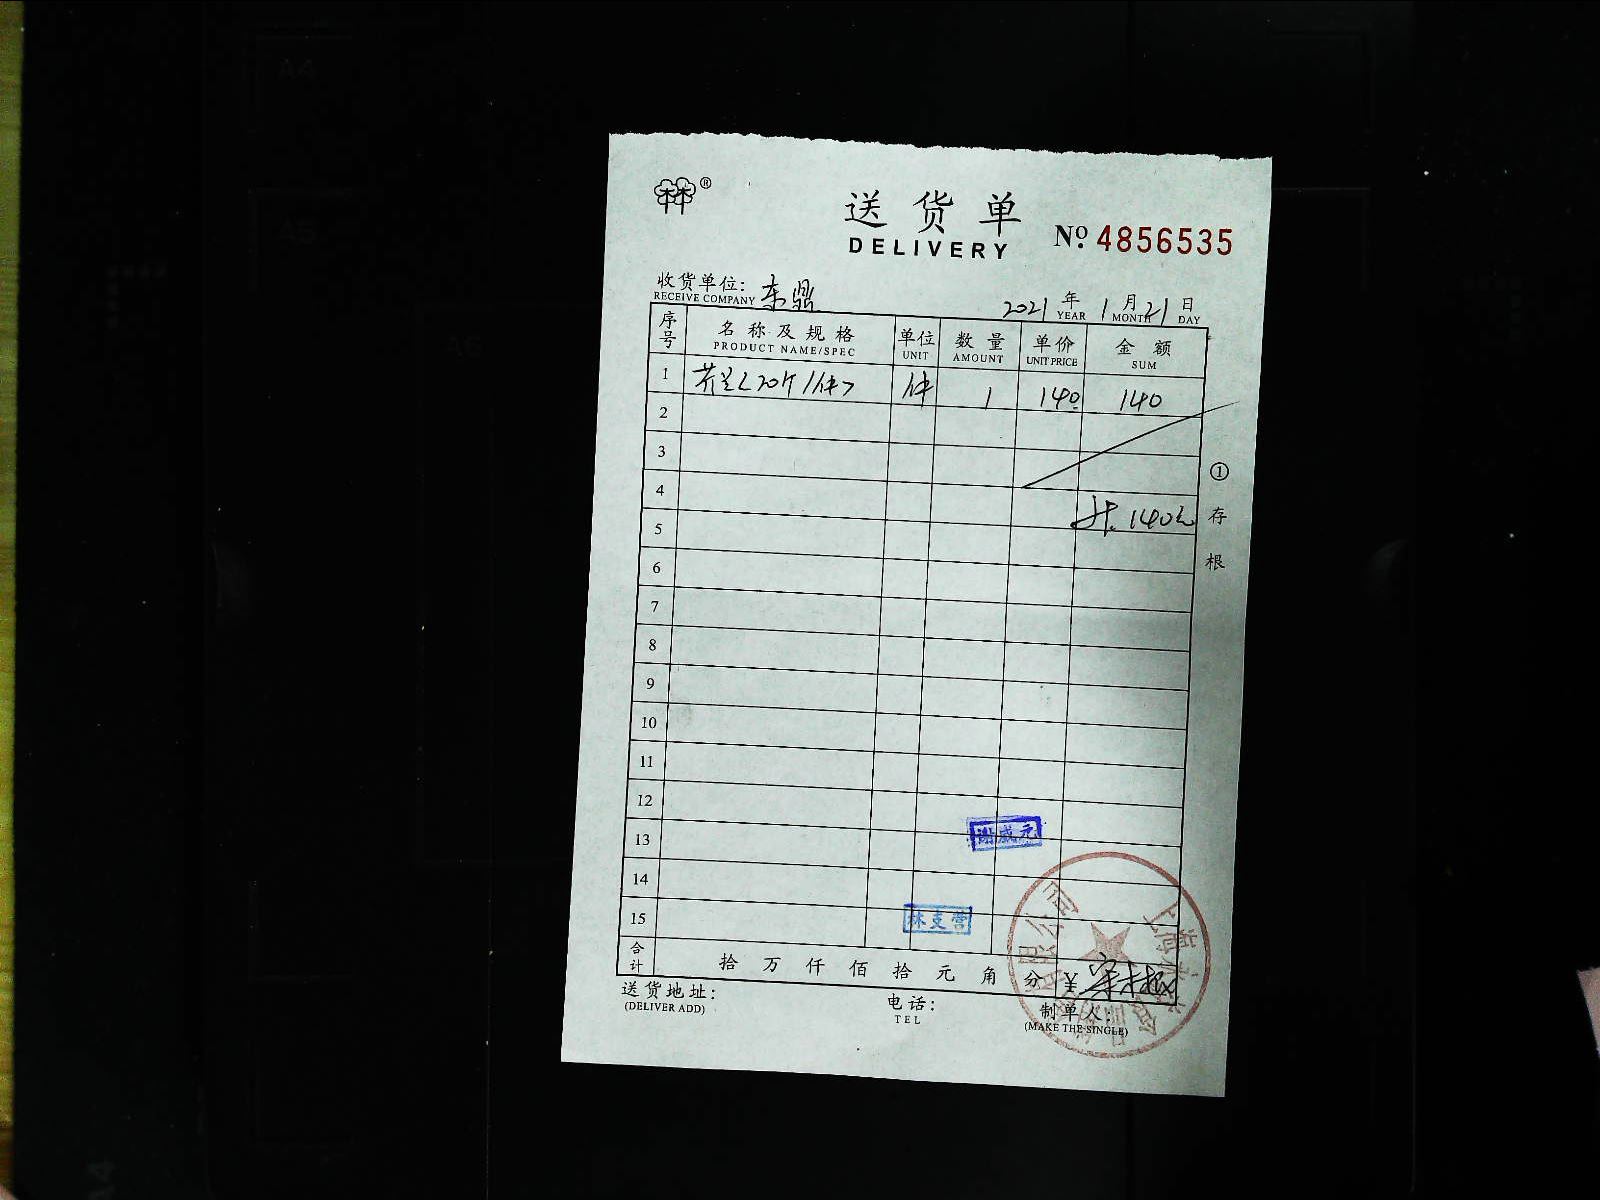 ®
送货单
DELIVERY
№ 4856535
收货单位: 东鼎
RECEIVE COMPANY
2021 年 1 月 21 日
YEAR MONTH DAY
序号 名称及规格 单位 数量 单价 金额
PRODUCT NAME/SPEC UNIT AMOUNT UNIT PRICE SUM
1 芥兰<20斤/件> 件 1 140 140
2
3
4
共 140元
5
6
7
8
9
10
11
12
13
14
15
① 存根
谢成元
林支营
合计 拾 万 仟 佰 拾 元 角 分 ¥
送货地址: 电话: 制单人:
(DELIVER ADD) TEL (MAKE THE SINGLE)
上海 有限公司
A4
A5
A6